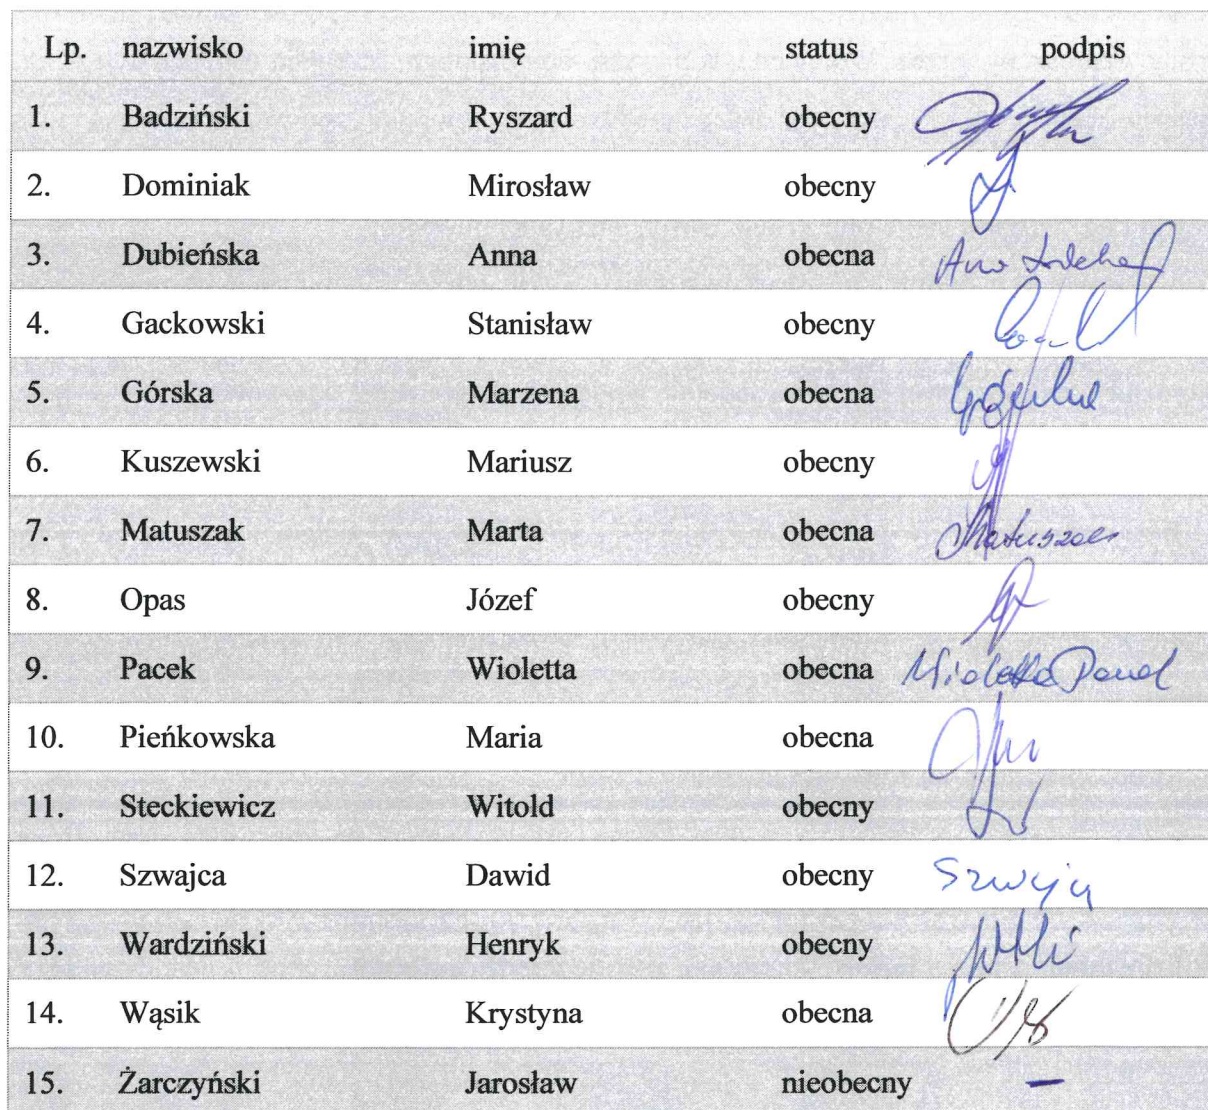 Lp. nazwisko imię status podpis
1. Badziński Ryszard obecny
2. Dominiak Mirosław obecny
3. Dubieńska Anna obecna
4. Gackowski Stanisław obecny
5. Górska Marzena obecna
6. Kuszewski Mariusz obecny
7. Matuszak Marta obecna Matuszak
8. Opas Józef obecny
9. Pacek Wioletta obecna Wioletta Pacek
10. Pieńkowska Maria obecna
11. Steckiewicz Witold obecny
12. Szwajca Dawid obecny
13. Wardziński Henryk obecny
14. Wąsik Krystyna obecna
15. Żarczyński Jarosław nieobecny –